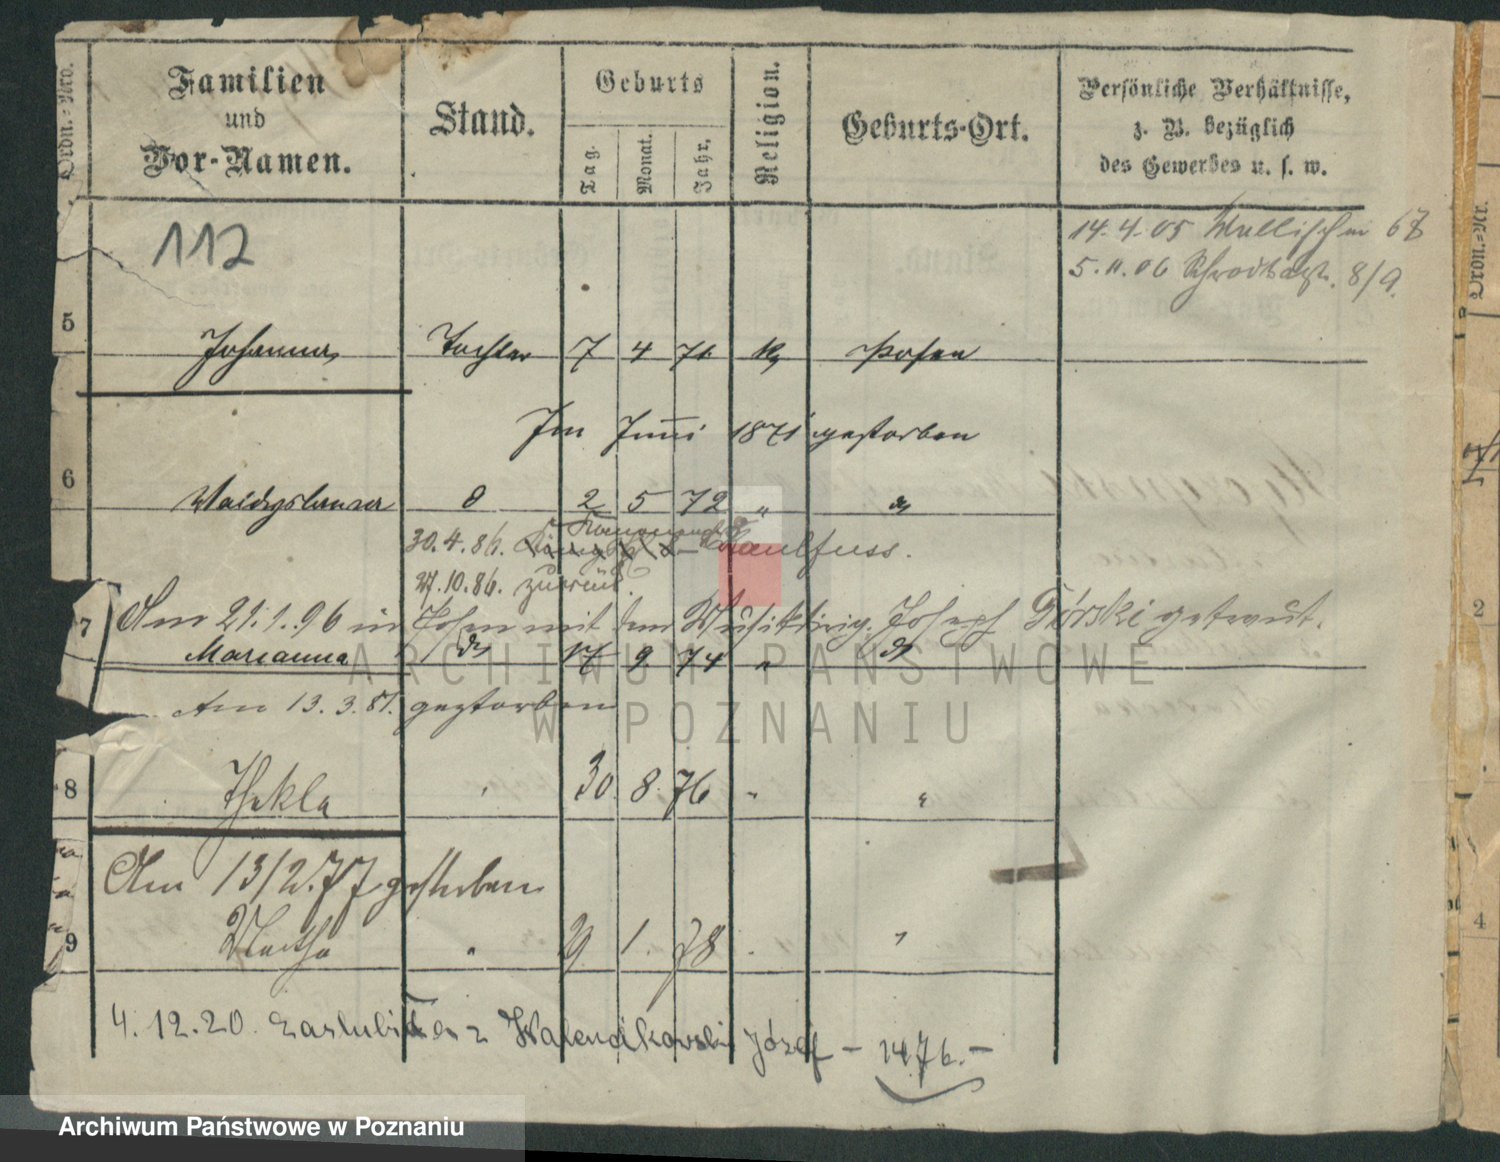 Ordn.=Nro.
Familien
und
Vor-Namen.
Stand.
Geburts
Tag.
Monat.
Jahr.
Religion.
Geburts-Ort.
Persönliche Verhältnisse,
z. B. bezüglich
des Gewerbes u. s. w.
112
14.4.05 67
5.11.06 8/9.
5 Johanna Tochter 7 4 71. k Posen
Im Juni 1871 gestorben
6 d 2 5 72 " d
30.4.86. Kaulfuss.
27.10.86. zurück.
Am 21.1.96 in Posen mit dem Joseph Górski getraut.
7 Marianna d 17 9 74 " d
Am 13.3.81. gestorben
8 Thekla " 30 8 76 " "
Am 13/2.77 gestorben
9 Martha " 9 1. 78 " "
4.12.20. z Józef – 1476. –
ARCHIWUM PAŃSTWOWE
W POZNANIU
Ordn.=Nr.
2
4
Archiwum Państwowe w Poznaniu